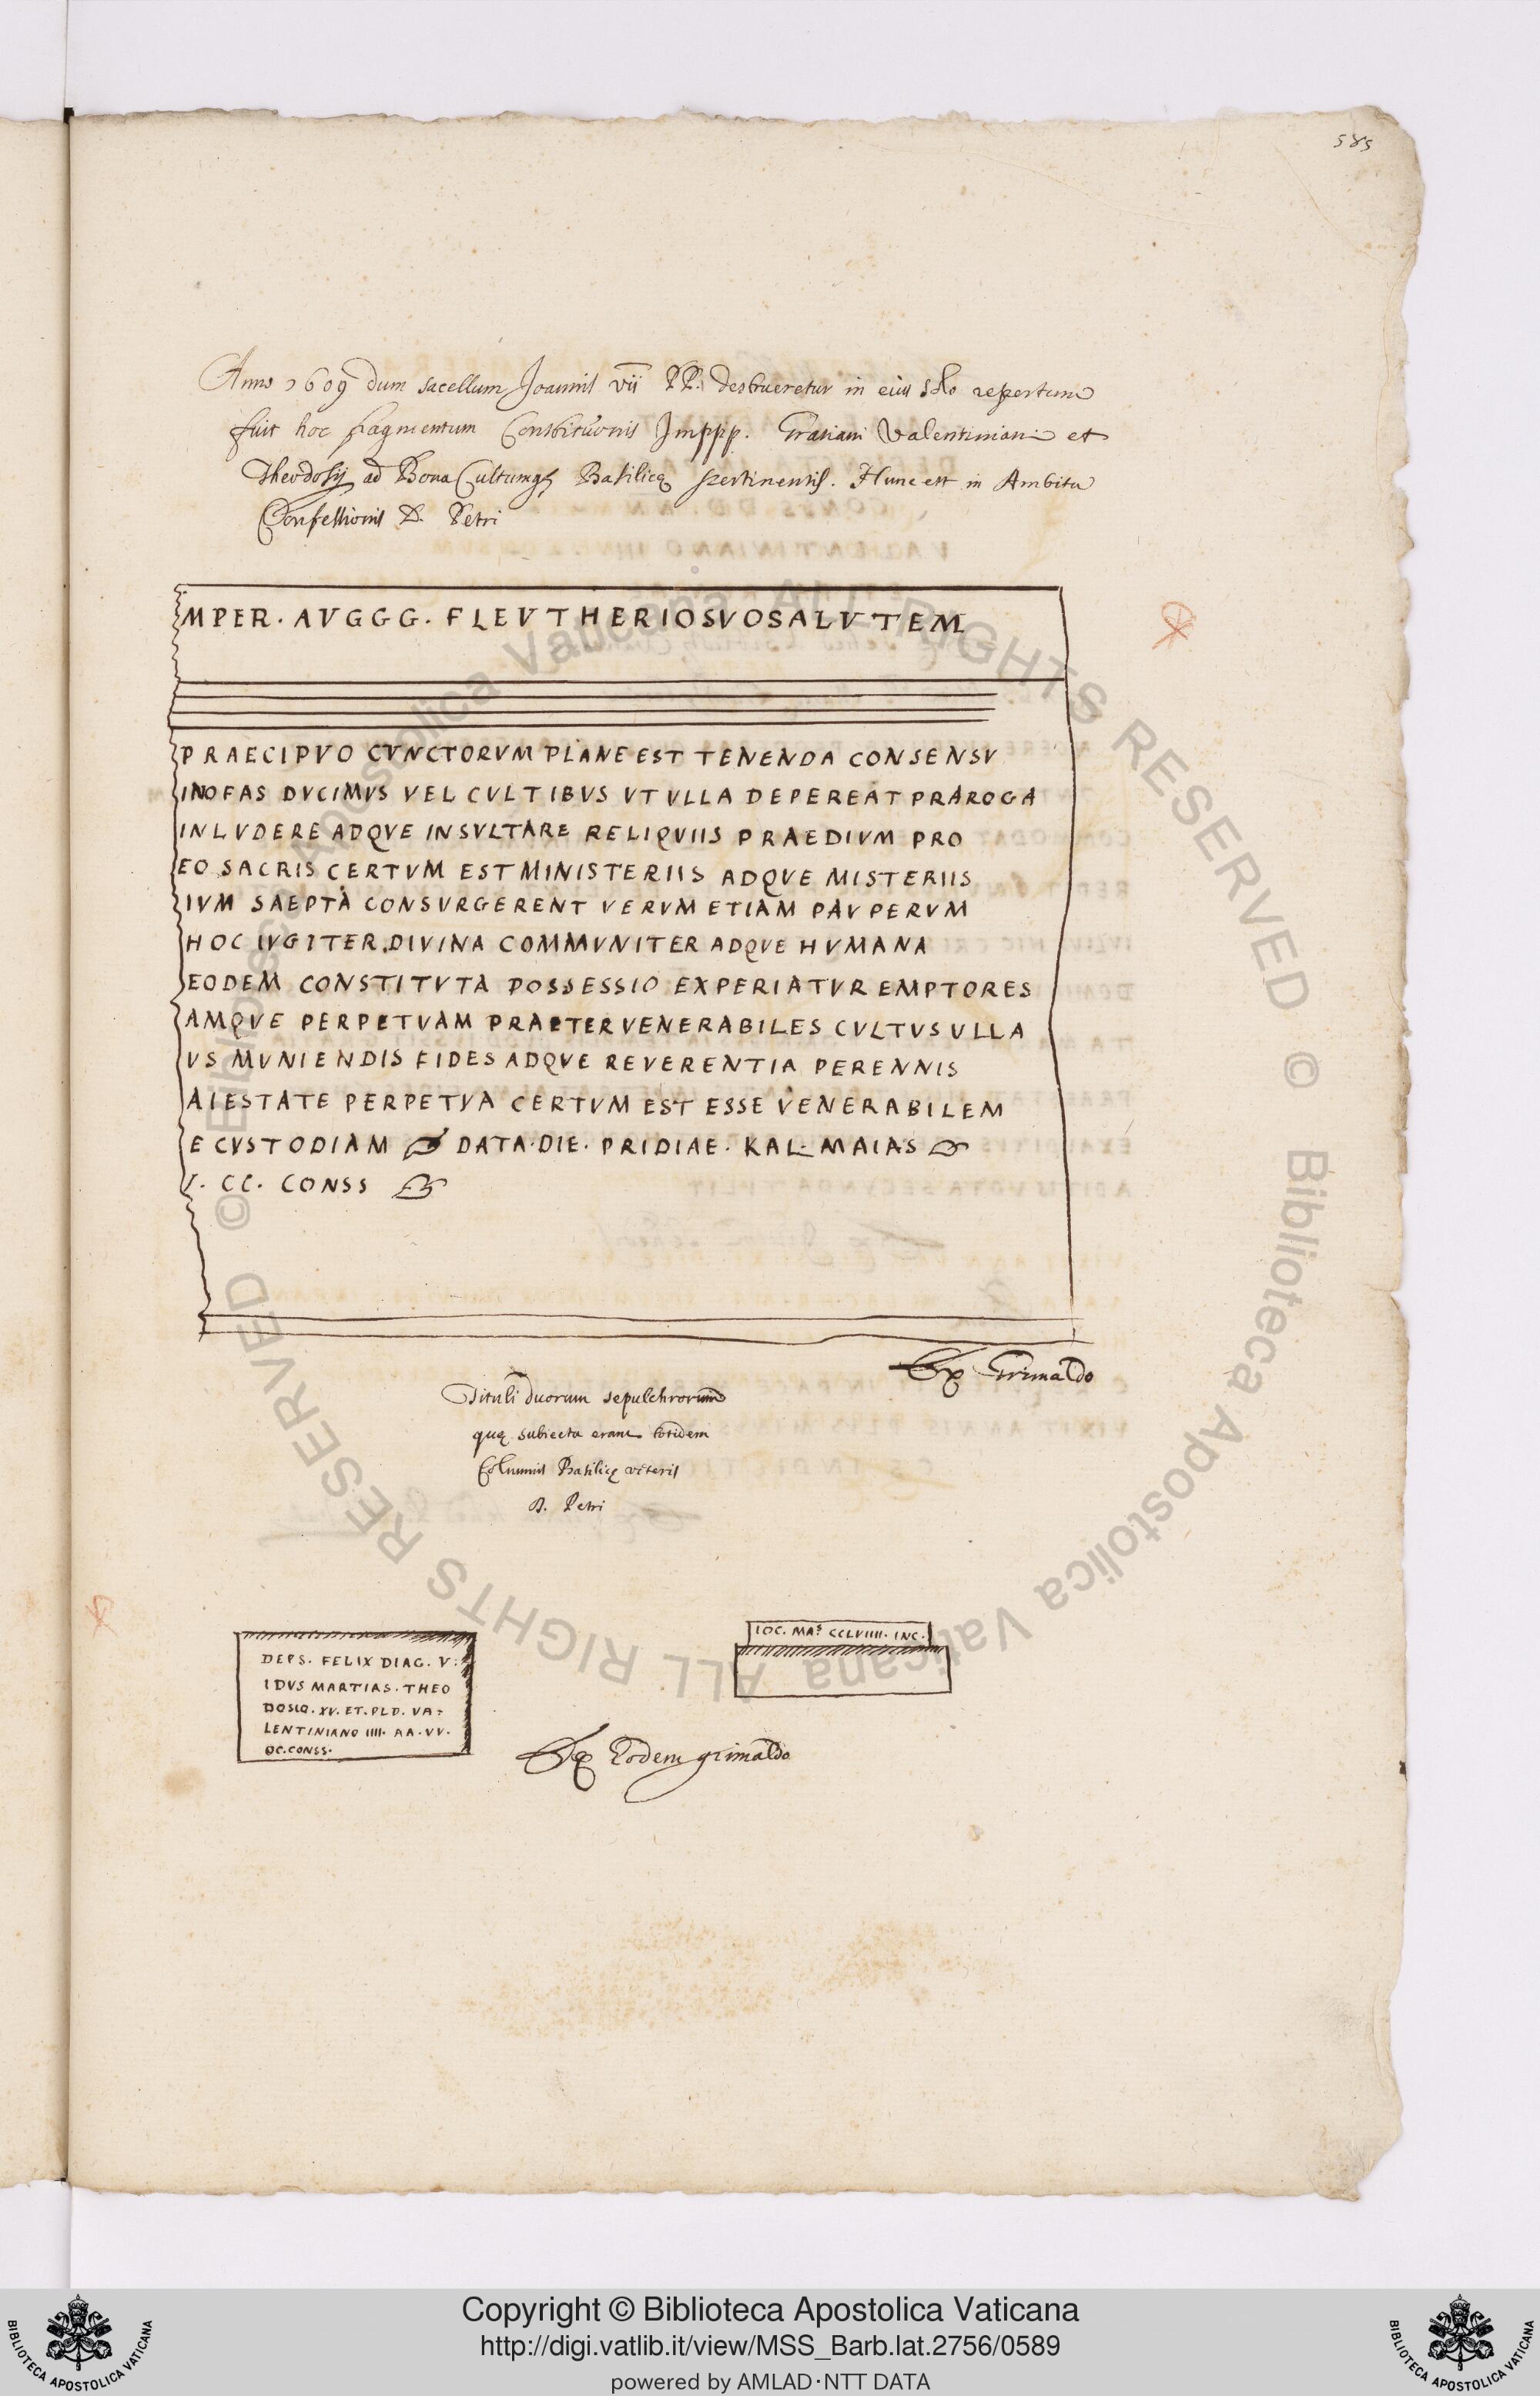 585
Anno 1609 dum sacellum Joannis vii PP. destrueretur in eius solo repertum
fuit hoc fragmentum Constitutionis Imppp. Gratiani Valentiniani et
Theodosij ad Bona Cultumq3 Basilicę pertinentis. Hunc est in Ambitu
Confessionis D. Petri
MPER. AVGGG. FLEVTHERIOSVOSALVTEM
PRAECIPVO CVNCTORVM PLANE EST TENENDA CONSENSV
INOFAS DVCIMVS VEL CVLTIBVS VT VLLA DEPEREAT PRAROGA
INLVDERE ADQVE INSVLTARE RELIQVIIS PRAEDIVM PRO
EO SACRIS CERTVM EST MINISTERIIS ADQVE MISTERIIS
IVM SAEPTA CONSVRGERENT VERVM ETIAM PAVPERVM
HOC IVGITER DIVINA COMMVNITER ADQVE HVMANA
EODEM CONSTITVTA POSSESSIO EXPERIATVR EMPTORES
AMQVE PERPETVAM PRAETER VENERABILES CVLTVS VLLA
VS MVNIENDIS FIDES ADQVE REVERENTIA PERENNIS
AIESTATE PERPETVA CERTVM EST ESSE VENERABILEM
E CVSTODIAM DATA·DIE· PRIDIAE· KAL· MAIAS
V. CC. CONSS
Ex Grimaldo
Tituli duorum sepulchrorum
quę subiecta erant totidem
Columnis Basilicę veteris
B. Petri
DEPS. FELIX DIAC. V:
IDVS MARTIAS. THEO
DOSIO. XV. ET. PLD. VA-
LENTINIANO IIII. AA. VV.
OC. CONSS.
IOC. MAS CCLVIIII. INC.
Ex Eodem grimaldo
© Biblioteca Apostolica Vaticana ALL RIGHTS RESERVED © Biblioteca Apostolica Vaticana ALL RIGHTS RESERVED
BIBLIOTECA APOSTOLICA VATICANA
Copyright © Biblioteca Apostolica Vaticana
http://digi.vatlib.it/view/MSS_Barb.lat.2756/0589
powered by AMLAD·NTT DATA
BIBLIOTECA APOSTOLICA VATICANA